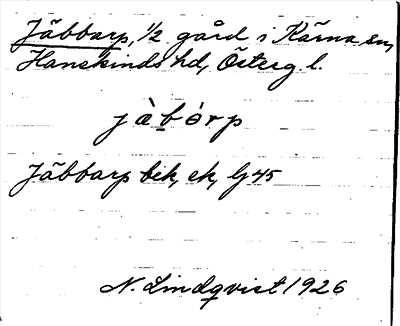 Jäbbarp, 1/2 gård i Kärna sn,
Hanekinds hd, Österg l.
jàb́órp
Jäbbarp bek, ek, Gj 45
N. Lindqvist 1926